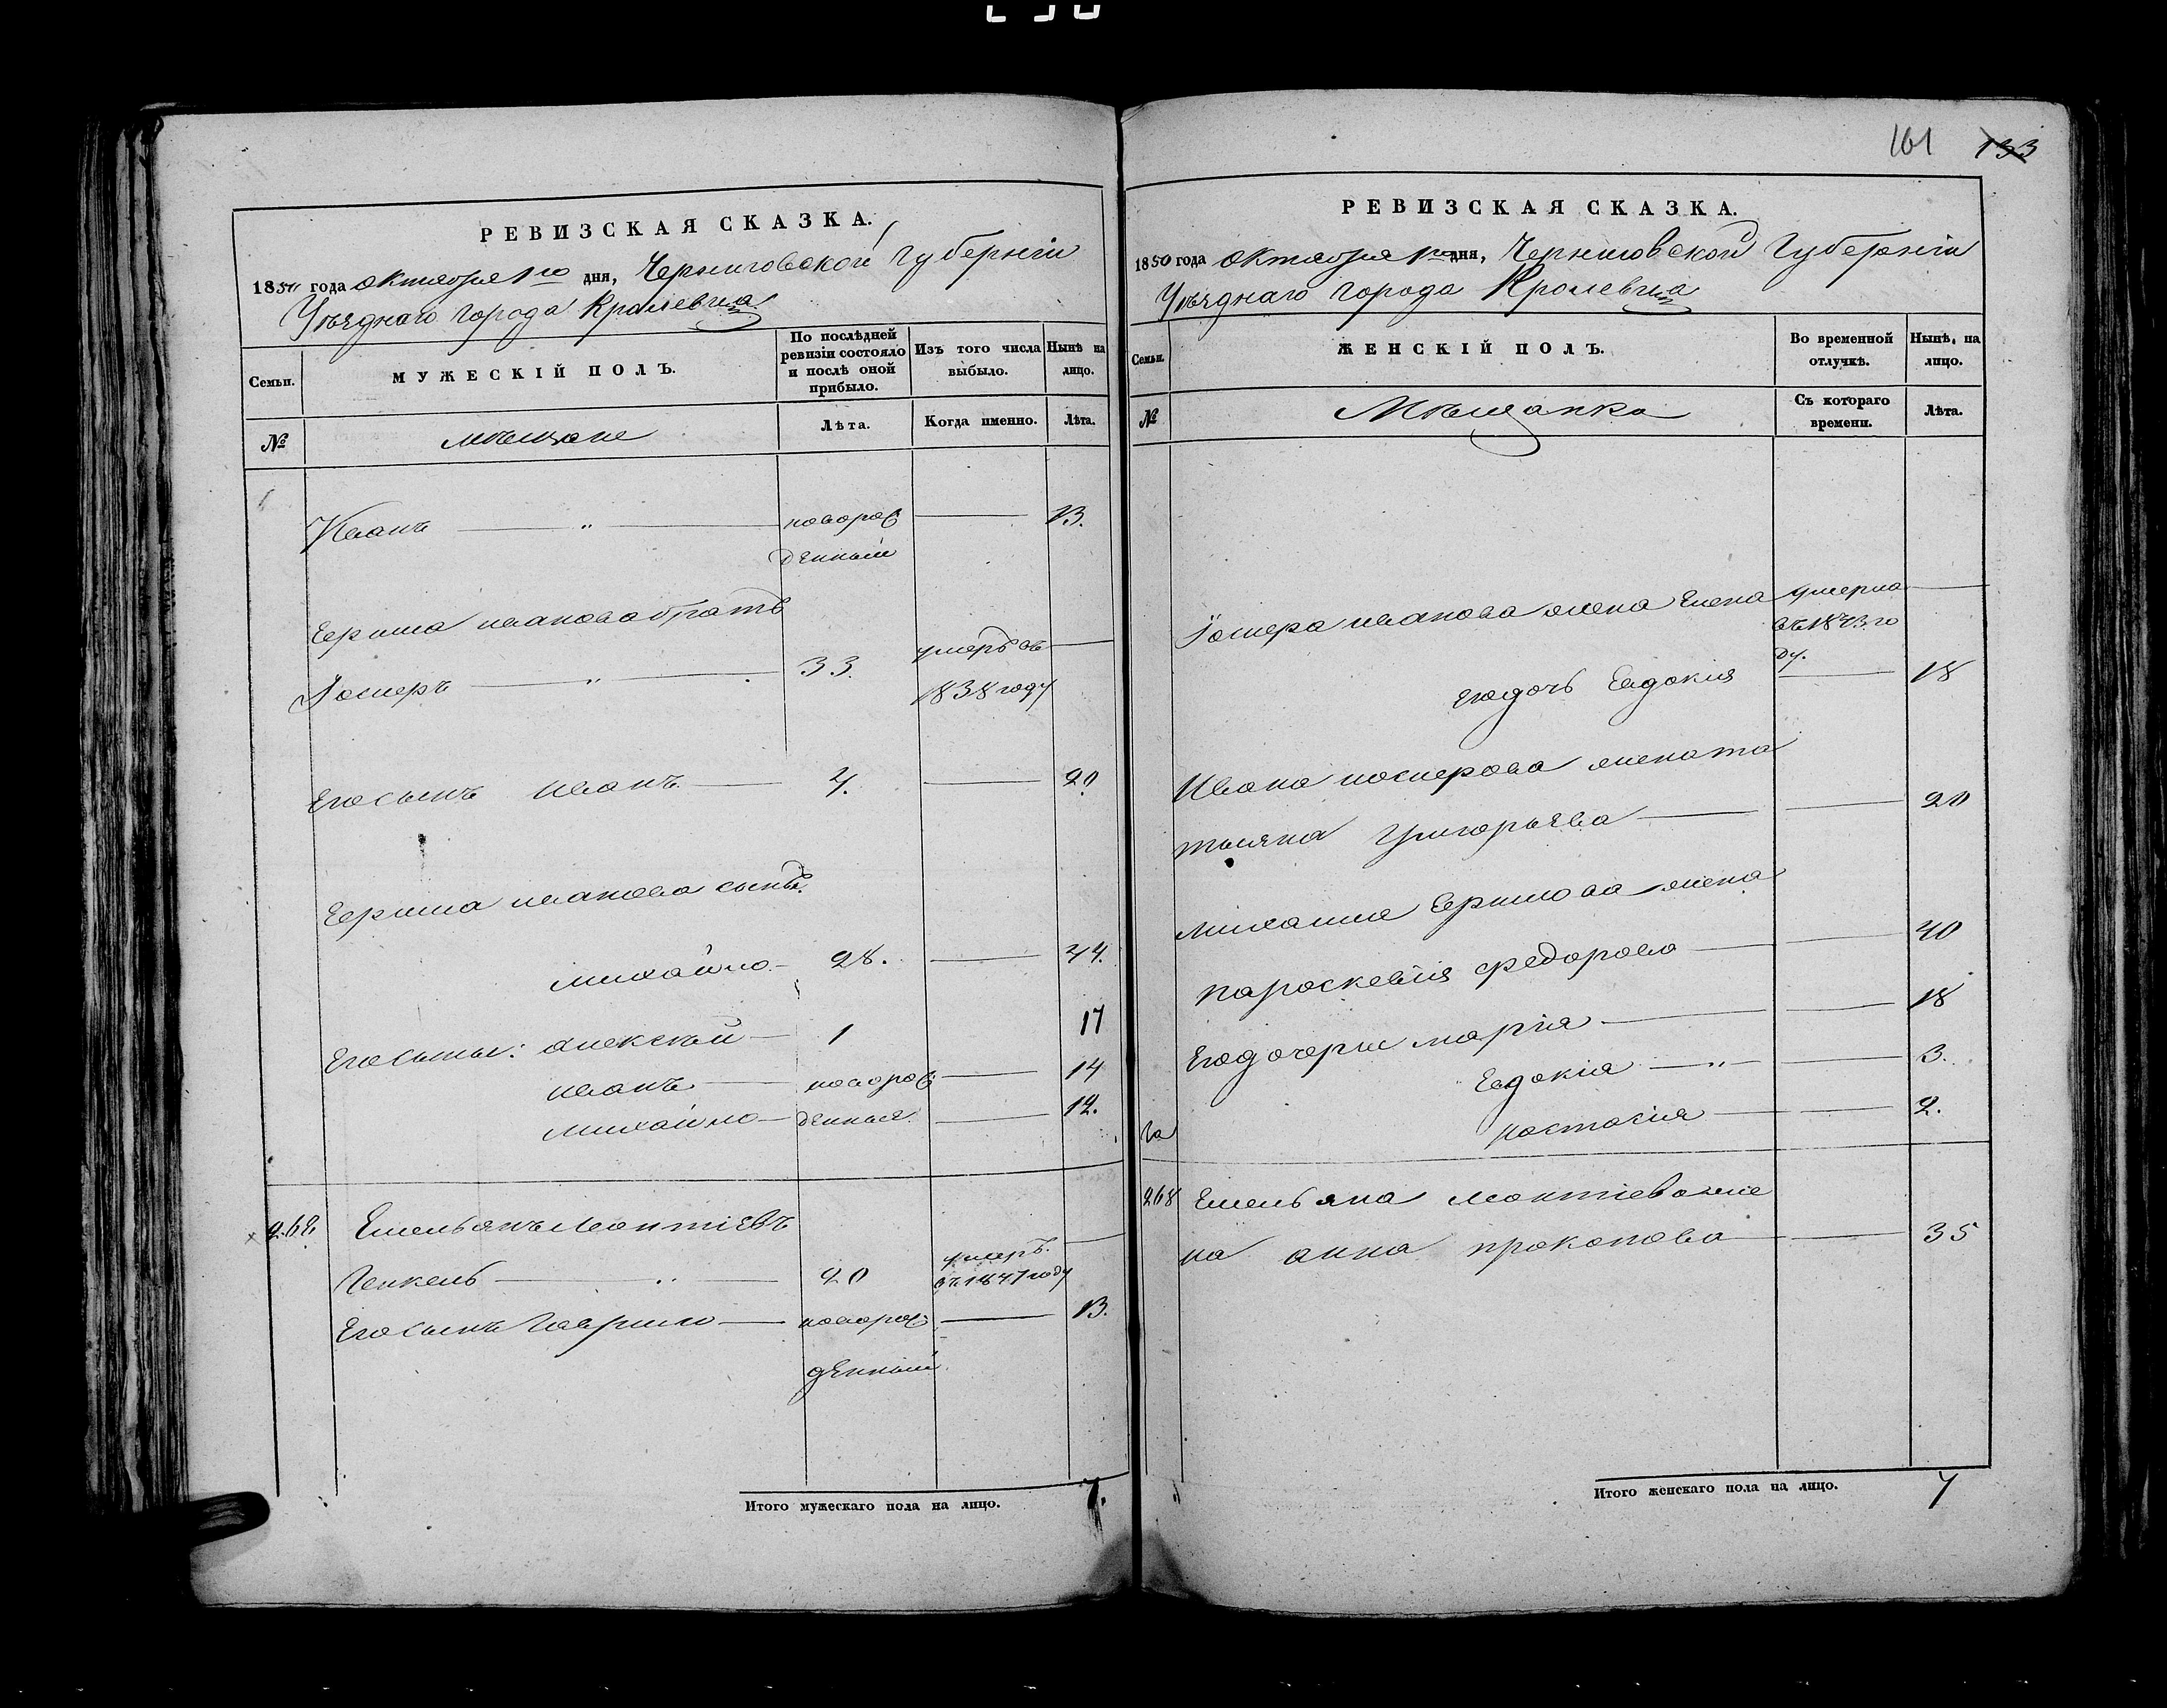 161 133
РЕВИЗСКАЯ СКАЗКА.
1850 года октября 1го дня, Черниговской Губерніи
Уѣзднаго города Кролевца
Семьи.
МУЖЕСКІЙ ПОЛЪ.
По послѣдней ревизіи состояло и послѣ оной прибыло.
Изъ того числа выбыло.
Нынѣ на лицо.
№
мѣщане
Лѣта.
Когда именно.
Лѣта.
Иванъ — „ — новорож — 13.
денный
Ивановабратъ
33. умеръ въ —
1838 году
Егосынъ Иванъ — 4. — 20
Иванова сынъ
Михайло — 28. — 44.
Егосыны: Алексѣй — 1 17
Иванъ — новорож — 14
Михайло — денныя. — 12.
268. Емельянъ Леонтіевъ
20 умеръ. —
въ 1847 году
Егосынъ Гаврило — новорож — 13.
денный
Итого мужескаго пола на лицо. 7.
РЕВИЗСКАЯ СКАЗКА.
1850 года октября 1го дня, Черниговской Губерніи
Уѣзднаго города Кролевца
Семьи.
ЖЕНСКІЙ ПОЛЪ.
Во временной отлучкѣ.
Нынѣ, на лицо.
№
Мѣщанка
Съ котораго времени.
Лѣта.
Иванова жена Елена умерла —
въ 1843 го
ду.
егодочь Евдокія — 18
Ивана жената
Григорьева — — 20
Михаила жена
Параскевія Федорова — — 40
Егодочери Марія — — 18
Евдокія — „ — — 3.
Настасія — — 2.
268 Емельяна Леонтіева же
на Анна Прокопова — — 35
Итого женскаго пола на лицо. 7